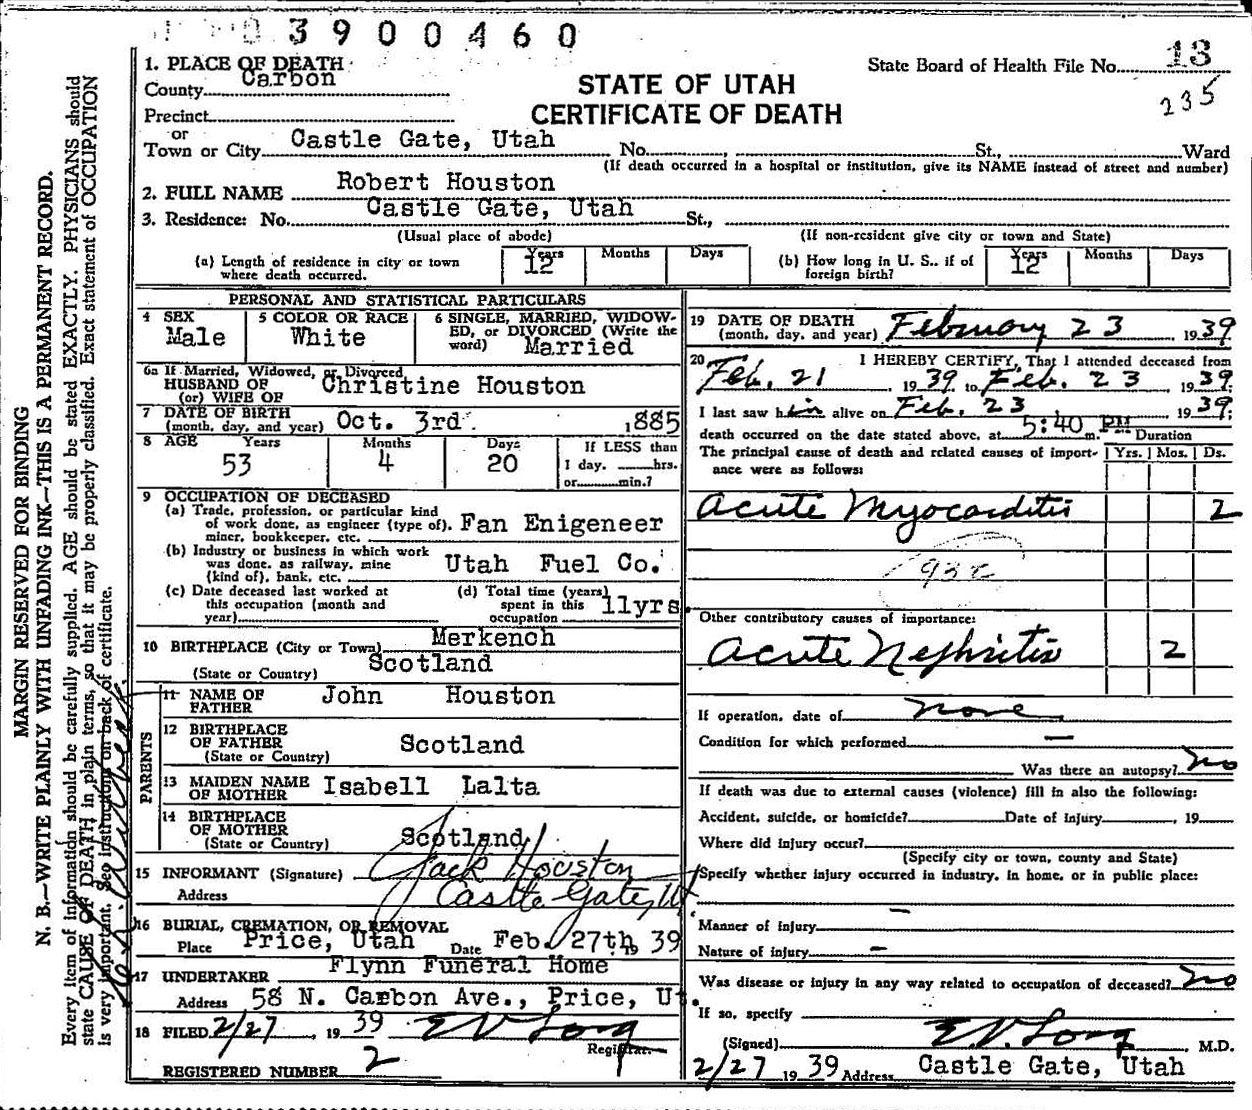 3900460
1. PLACE OF DEATH
County Carbon
Precinct
or
Town or City Castle Gate, Utah No. St., Ward
(If death occurred in a hospital or institution, give its NAME instead of street and number)
STATE OF UTAH
CERTIFICATE OF DEATH
State Board of Health File No. 13
235
2. FULL NAME Robert Houston
3. Residence: No. Castle Gate, Utah St.,
(Usual place of abode) (If non-resident give city or town and State)
(a) Length of residence in city or town where death occurred. Years 12 Months Days
(b) How long in U. S., if of foreign birth? Years 12 Months Days
PERSONAL AND STATISTICAL PARTICULARS
4 SEX Male
5 COLOR OR RACE White
6 SINGLE, MARRIED, WIDOW-
ED, or DIVORCED (Write the
word) Married
6a If Married, Widowed, or Divorced
HUSBAND OF
(or) WIFE OF Christine Houston
7 DATE OF BIRTH
(month, day, and year) Oct. 3rd. 1885
8 AGE Years 53 Months 4 Days 20
If LESS than
1 day, hrs.
or min.?
9 OCCUPATION OF DECEASED
(a) Trade, profession, or particular kind
of work done, as engineer (type of),
miner, bookkeeper, etc. Fan Enigeneer
(b) Industry or business in which work
was done, as railway, mine
(kind of), bank, etc. Utah Fuel Co.
(c) Date deceased last worked at
this occupation (month and
year)
(d) Total time (years)
spent in this
occupation 11yrs.
10 BIRTHPLACE (City or Town) Merkench
(State or Country) Scotland
PARENTS
11 NAME OF
FATHER John Houston
12 BIRTHPLACE
OF FATHER
(State or Country) Scotland
13 MAIDEN NAME
OF MOTHER Isabell Lalta
14 BIRTHPLACE
OF MOTHER
(State or Country) Scotland
15 INFORMANT (Signature) Jack Houston
Address Castle Gate, Ut
16 BURIAL, CREMATION, OR REMOVAL
Place Price, Utah Date Feb. 27th 19 39
17 UNDERTAKER Flynn Funeral Home
Address 58 N. Carbon Ave., Price, Ut.
18 FILED 2/27, 19 39 E V Long
Registrar
REGISTERED NUMBER 2
19 DATE OF DEATH
(month, day, and year) February 23 1939
20 I HEREBY CERTIFY, That I attended deceased from
Feb. 21, 1939 to Feb. 23 1939
I last saw him alive on Feb. 23 1939;
death occurred on the date stated above, at 5:40 m. PM
The principal cause of death and related causes of import-
ance were as follows:
Duration
Yrs. Mos. Ds.
Acute Myocarditis 2
93c
Other contributory causes of importance:
Acute Nephritis 2
If operation, date of none
Condition for which performed —
Was there an autopsy? no
If death was due to external causes (violence) fill in also the following:
Accident, suicide, or homicide? Date of injury , 19
Where did injury occur?
(Specify city or town, county and State)
Specify whether injury occurred in industry, in home, or in public place:
Manner of injury —
Nature of injury —
Was disease or injury in any way related to occupation of deceased? no
If so, specify
(Signed) E.V. Long, M.D.
2/27 19 39 Address Castle Gate, Utah
MARGIN RESERVED FOR BINDING
N. B.—WRITE PLAINLY WITH UNFADING INK—THIS IS A PERMANENT RECORD.
Every item of information should be carefully supplied. AGE should be stated EXACTLY. PHYSICIANS should
state CAUSE OF DEATH in plain terms, so that it may be properly classified. Exact statement of OCCUPATION
is very important. See instructions on back of certificate.